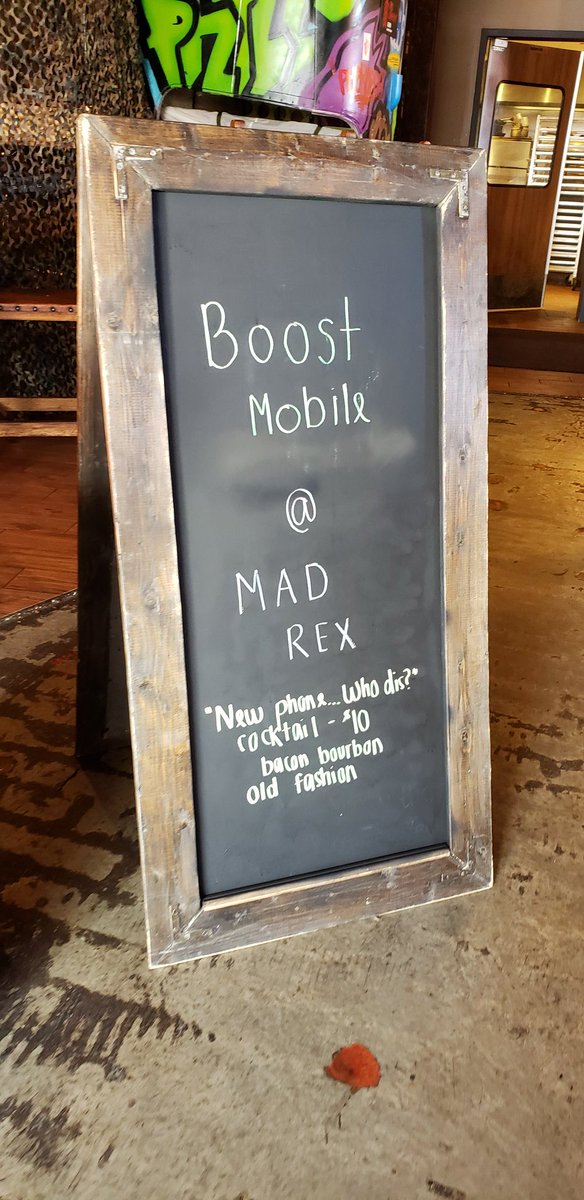 Boost
Mobile
@
MAD
REX
"New phone... Who dis?"
cocktail - $10
bacon bourbon
old fashion